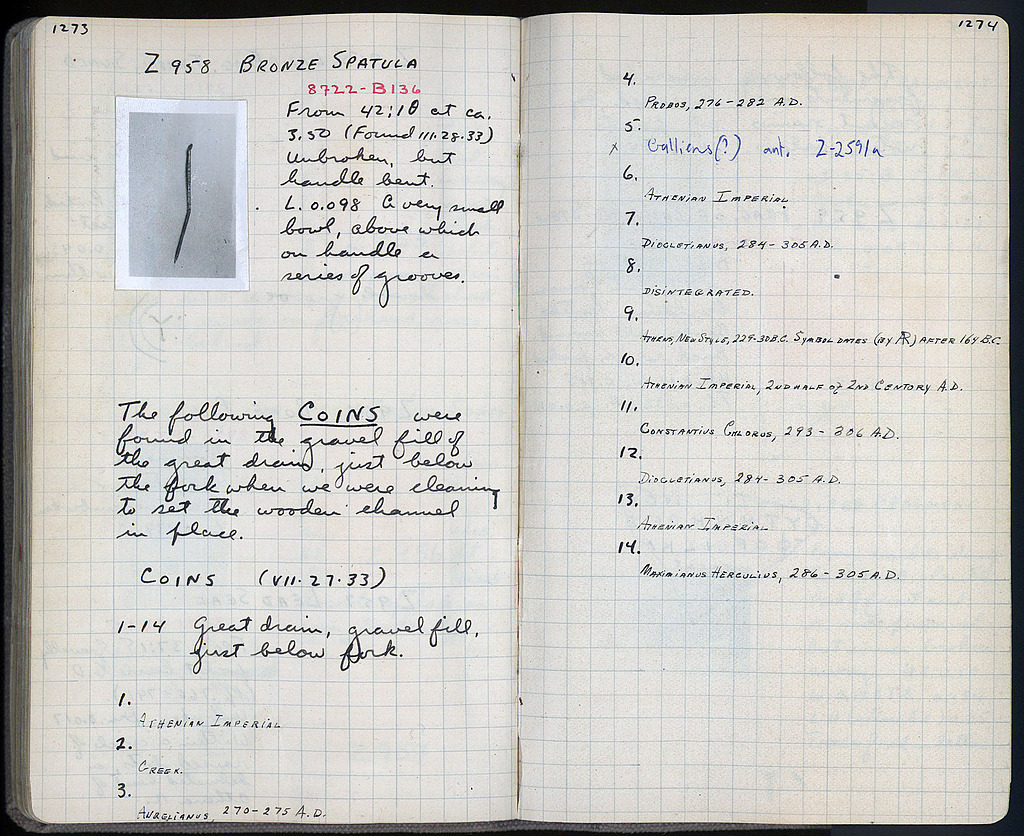 1273
Z 958 BRONZE SPATULA
8722-B136
From 42;1Θ at ca.
3.50 (Found III.28.33)
Unbroken, but
handle bent.
L. 0.098 A very small
bowl, above which
on handle a
series of grooves.
The following COINS were
found in the gravel fill of
the great drain, just below
the fork when we were cleaning
to set the wooden channel
in place.
COINS (VII.27.33)
1-14 Great drain, gravel fill,
just below fork.
1.
ATHENIAN IMPERIAL
2.
GREEK.
3.
AURELIANUS, 270-275 A.D.
1274
4.
PROBUS, 276-282 A.D.
5.
x Galliens(?) ant. Z-2591a
6.
ATHENIAN IMPERIAL
7.
DIOCLETIANUS, 284-305 A.D.
8.
DISINTEGRATED.
9.
ATHENS, NEW STYLE, 229-30 B.C. SYMBOL DATES (BY AR) AFTER 164 B.C.
10.
ATHENIAN IMPERIAL, 2ND HALF OF 2ND CENTURY A.D.
11.
CONSTANTIUS CHLORUS, 293-306 A.D.
12.
DIOCLETIANUS, 284-305 A.D.
13.
ATHENIAN IMPERIAL
14.
MAXIMIANUS HERCULIUS, 286-305 A.D.